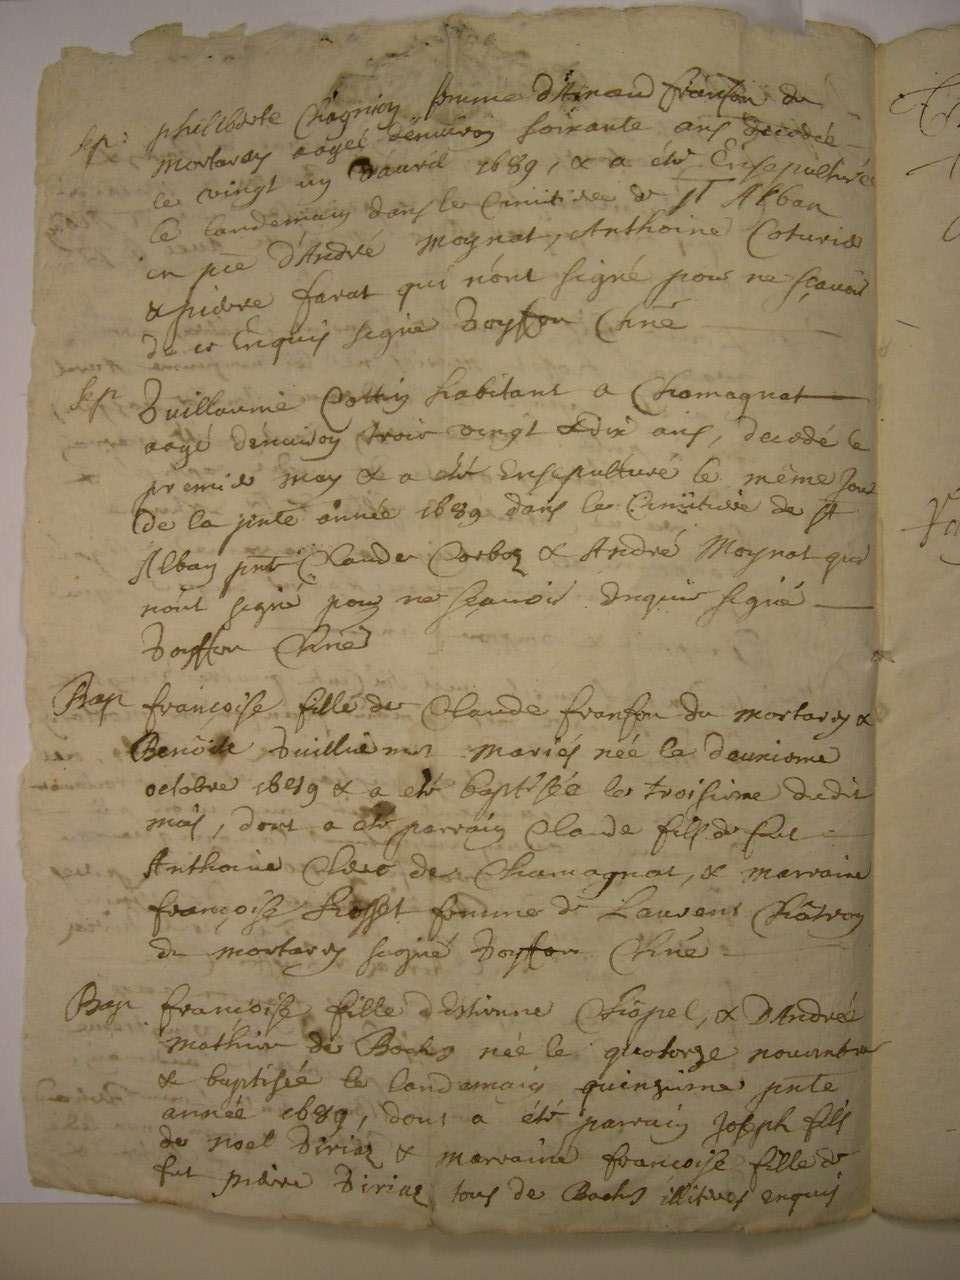 Sep: philiberte Chagnion femme d'Arnaud franfon du
mortarey aagée denuiron soixante ans decedée
le vingt un d'avril 1689, & a été Ensepulturée
le landemain dans le Cimitiere de st Alban
en pce d'André Moynat, Anthoine Coturier
& pierre farat qui n'ont signé pour ne sçauoir
de ce Enquis signé Curé
Sep Guillaume Cottin habitant a Chamagnat
aagé denuiron trois vingt & dix ans, decedé le
premier may & a eté Ensepulturé le même Jour
de la pnte année 1689 dans le Cimitiere de st
Alban pnt Claude Corboz & André Moynat qui
n'ont signé pour ne sçauoir Enquis signé
Curé
Bap françoise fille de Claude franfon du mortarey &
Benoite Guillermet mariés née le deuxieme
octobre 1689 & a eté baptisée le troisieme dudit
mois, dont a eté parrain Claude fils de fut
Anthoine Clerc de Chamagnat, & marraine
françoise femme de Laurent Châtron
du mortarey signé Curé
Bap françoise fille d'Etienne Chapel, & D'Andrée
Mathieu de Bachs née le quatorze nouembre
& baptisée le landemain quinzieme pnte
année 1689, dont a été parrain Joseph fils
de noel Giriaz & marraine françoise fille de
fut pierre Giriaz tous de Bachs illiteres enquis